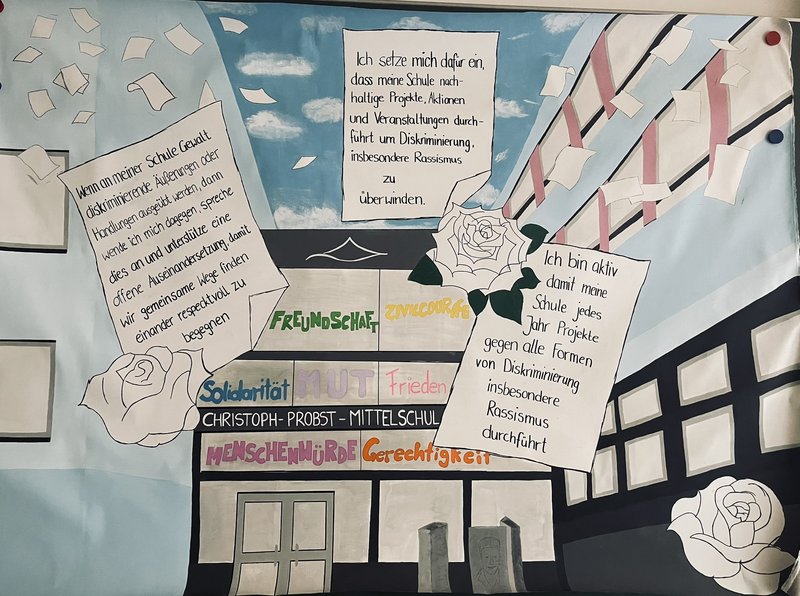 Ich setze mich dafür ein,
dass meine Schule nach-
haltige Projekte, Aktionen
und Veranstaltungen durch-
führt um Diskriminierung,
insbesondere Rassismus
zu
überwinden.
Wenn an meiner Schule Gewalt
diskriminierende Äußerungen oder
Handlungen ausgeübt werden, dann
wende ich mich dagegen, spreche
dies an und unterstütze eine
offene Auseinandersetzung, damit
wir gemeinsame Wege finden
einander respektvoll zu
begegnen
Ich bin aktiv
damit meine
Schule jedes
Jahr Projekte
gegen alle Formen
von Diskriminierung
insbesondere
Rassismus
durchführt
FREUNDSCHAFT ZIVILCOURAGE
Solidarität MUT Frieden
CHRISTOPH-PROBST-MITTELSCHUL
MENSCHENWÜRDE Gerechtigkeit